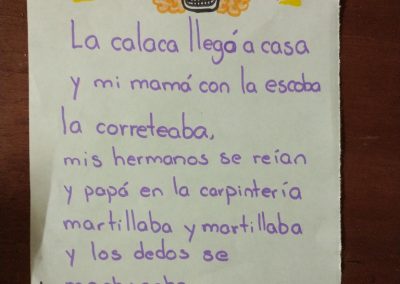 La calaca llegó a casa
y mi mamá con la escoba
la correteaba,
mis hermanos se reían
y papá en la carpintería
martillaba y martillaba
y los dedos se